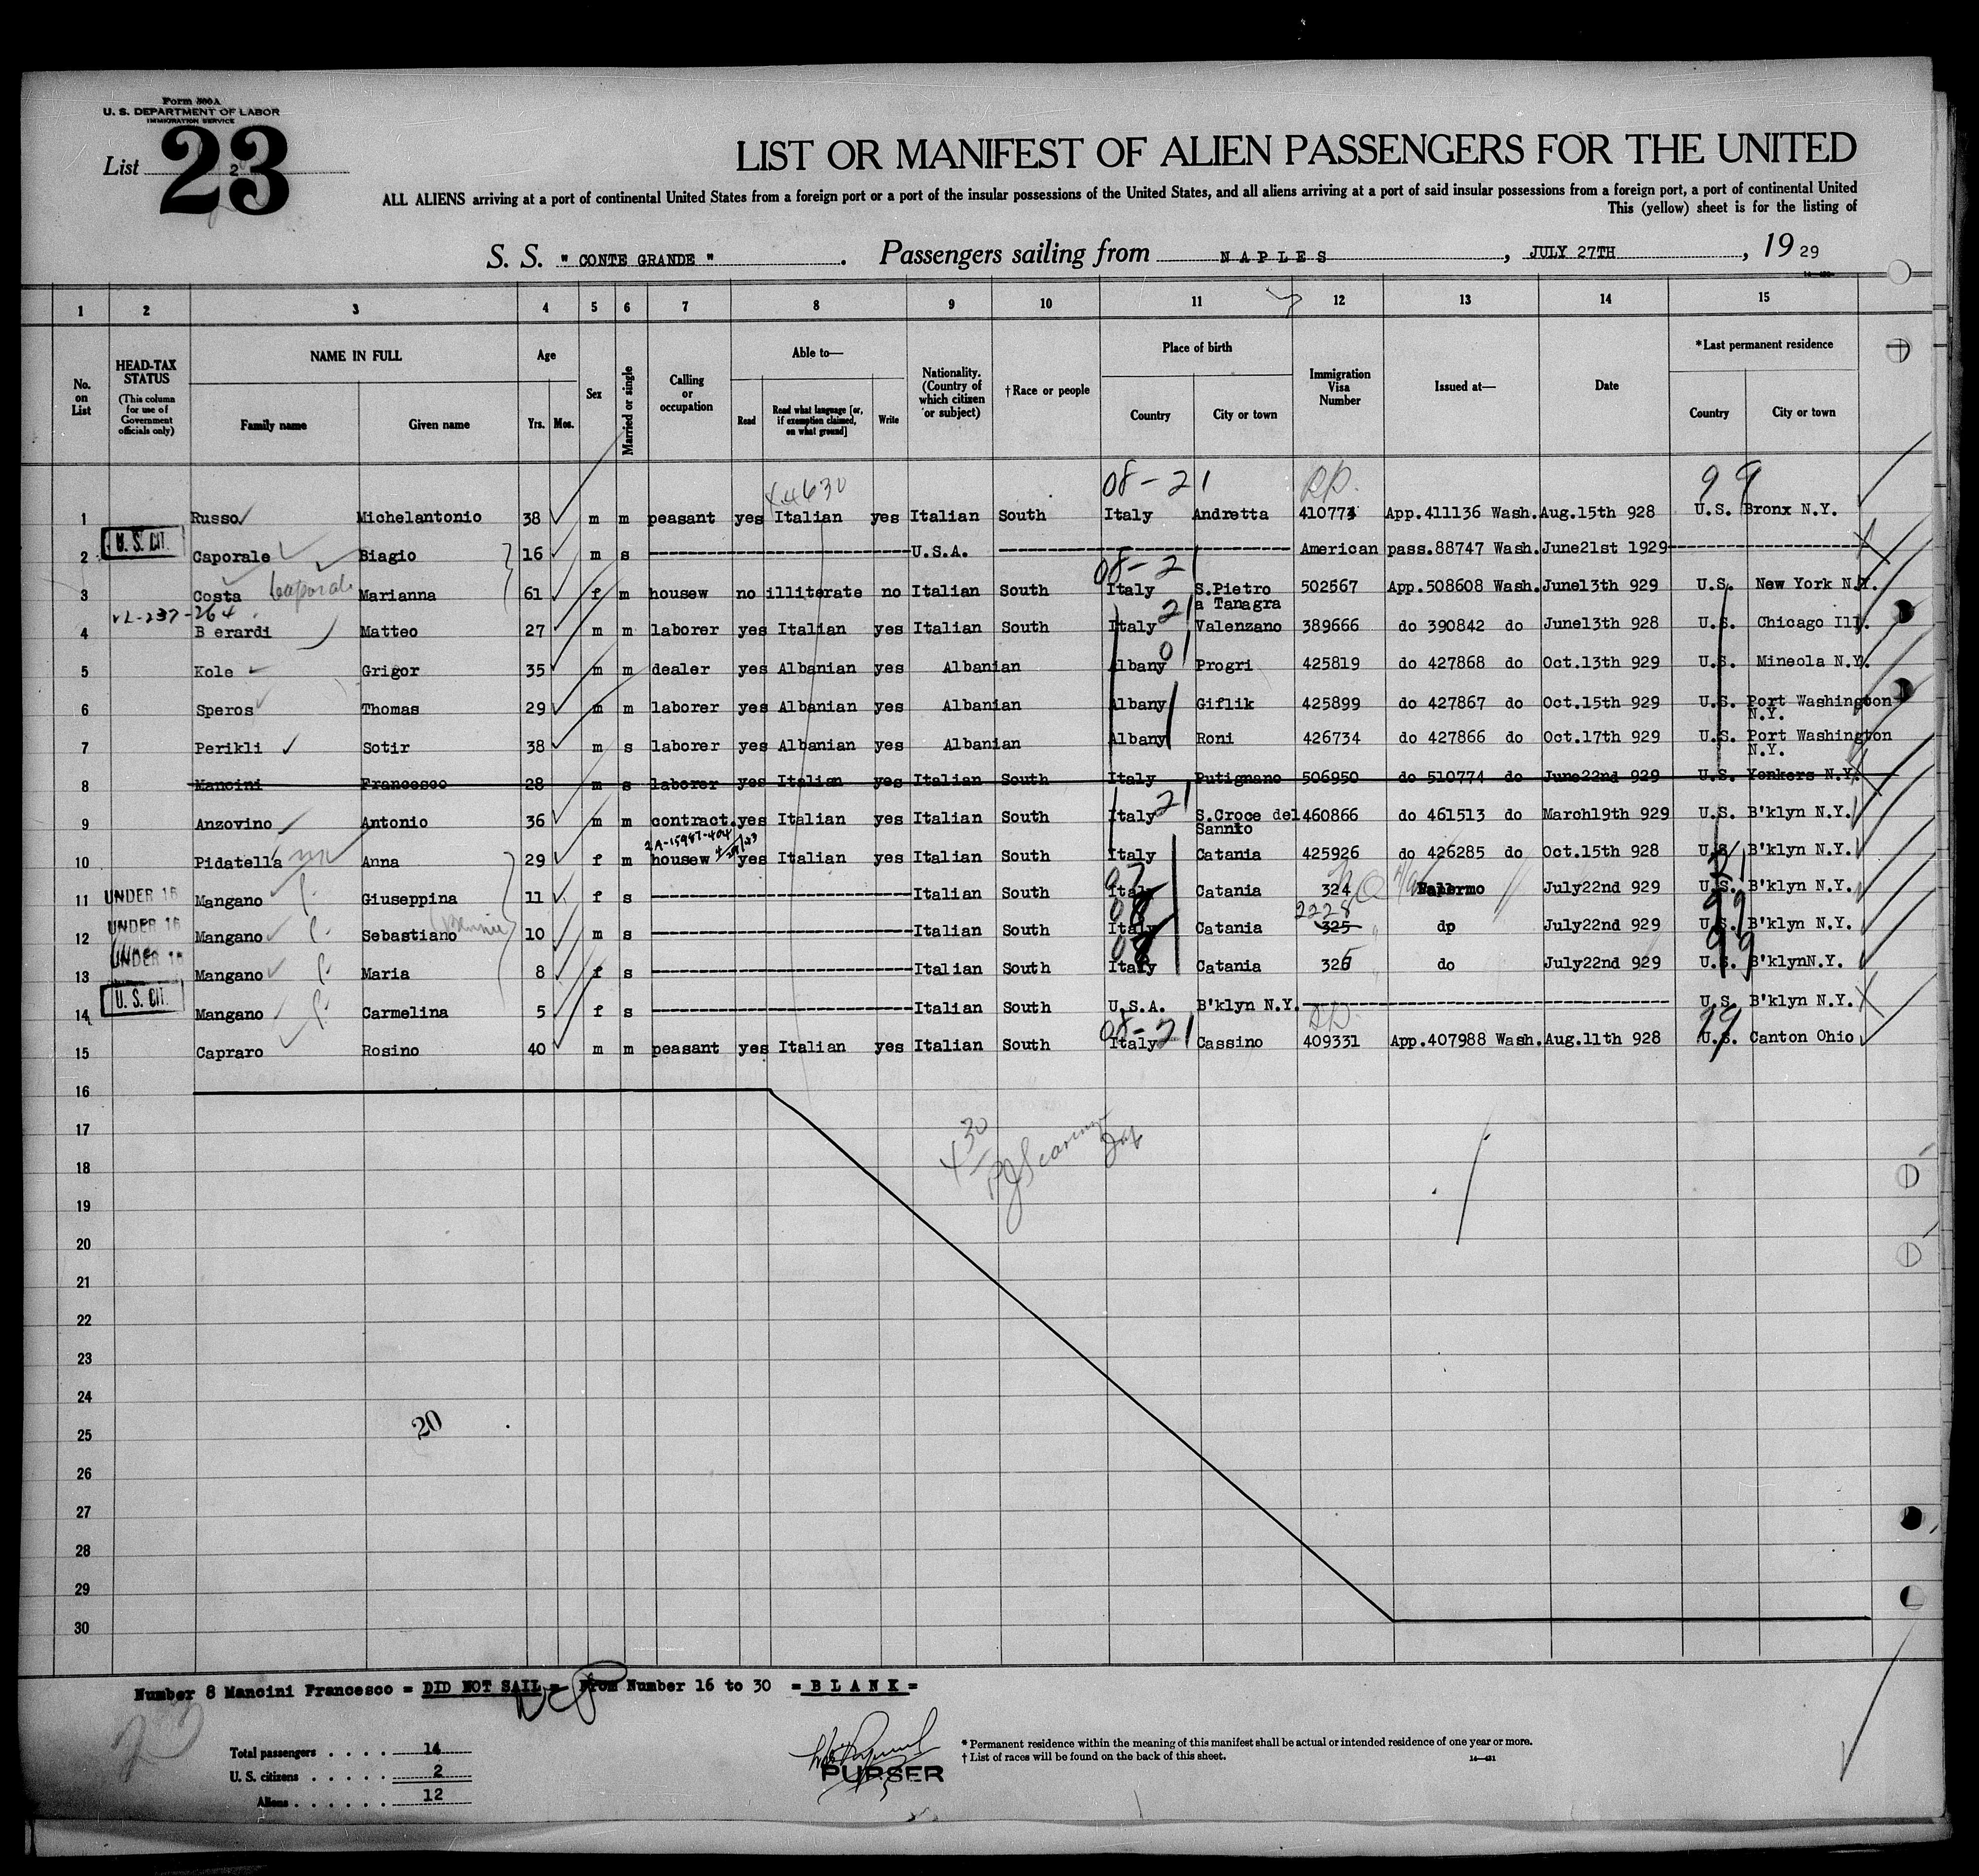 Form 500A
U. S. DEPARTMENT OF LABOR
IMMIGRATION SERVICE
List 23
LIST OR MANIFEST OF ALIEN PASSENGERS FOR THE UNITED
ALL ALIENS arriving at a port of continental United States from a foreign port or a port of the insular possessions of the United States, and all aliens arriving at a port of said insular possessions from a foreign port, a port of continental United
This (yellow) sheet is for the listing of
S. S. " CONTE GRANDE " . Passengers sailing from NAPLES , JULY 27TH , 19 29
1 2 3 4 5 6 7 8 9 10 11 12 13 14 15
No. on List
HEAD-TAX STATUS (This column for use of Government officials only)
NAME IN FULL Family name Given name
Age Yrs. Mos.
Sex
Married or single
Calling or occupation
Able to— Read Read what language [or, if exemption claimed, on what ground] Write
Nationality. (Country of which citizen or subject)
†Race or people
Place of birth Country City or town
Immigration Visa Number
Issued at—
Date
*Last permanent residence Country City or town
X4630 08-21 99
1 Russo Michelantonio 38 m m peasant yes Italian yes Italian South Italy Andretta 410773 App.411136 Wash. Aug.15th 928 U.S. Bronx N.Y.
2 U. S. CIT. Caporale Biagio 16 m s U.S.A. American pass.88747 Wash. June21st 1929
08-21
3 Costa Caporale Marianna 61 f m housew no illiterate no Italian South Italy S.Pietro a Tanagra 502567 App.508608 Wash. June13th 929 U.S. New York N.Y.
4 B erardi Matteo 27 m m laborer yes Italian yes Italian South Italy 21 Valenzano 389666 do 390842 do June13th 928 U.S. Chicago Ill.
5 Kole Grigor 35 m m dealer yes Albanian yes Albanian Albany 01 Progri 425819 do 427868 do Oct.13th 929 U.S. Mineola N.Y.
6 Speros Thomas 29 m m laborer yes Albanian yes Albanian Albany Giflik 425899 do 427867 do Oct.15th 929 U.S. Port Washington N.Y.
7 Perikli Sotir 38 m s laborer yes Albanian yes Albanian Albany Roni 426734 do 427866 do Oct.17th 929 U.S. Port Washington N.Y.
8 Mancini Francesco 28 m s laborer yes Italian yes Italian South Italy Putignano 506950 do 510774 do June22nd 929 U.S. Yonkers N.Y.
9 Anzovino Antonio 36 m m contract. yes Italian yes Italian South Italy 21 S.Croce del Sannio 460866 do 461513 do March19th 929 U.S. B'klyn N.Y.
10 Pidatella Anna 29 f m housew yes Italian yes Italian South Italy Catania 425926 do 426285 do Oct.15th 928 U.S. B'klyn N.Y.
11 UNDER 16 Mangano Giuseppina 11 f s Italian South Italy Catania 324 Palermo July22nd 929 U.S. B'klyn N.Y.
2228
12 UNDER 16 Mangano Sebastiano 10 m s Italian South Italy Catania 325 dp July22nd 929 U.S. B'klyn N.Y.
13 UNDER 16 Mangano Maria 8 f s Italian South Italy Catania 326 do July22nd 929 U.S. B'klynN.Y.
14 U. S. CIT. Mangano Carmelina 5 f s Italian South U.S.A. B'klyn N.Y. U.S. B'klyn N.Y.
15 Capraro Rosino 40 m m peasant yes Italian yes Italian South Italy Cassino 409331 App.407988 Wash. Aug.11th 928 U.S. Canton Ohio
16
17
18
19
20
21
22
23
24
25
26
27
28
29
30
20
Number 8 Mancini Francesco = DID NOT SAIL = From Number 16 to 30 = B L A N K =
Total passengers . . . . 14
U. S. citizens . . . . . 2
Aliens . . . . . . 12
PURSER
* Permanent residence within the meaning of this manifest shall be actual or intended residence of one year or more.
† List of races will be found on the back of this sheet.
14—431